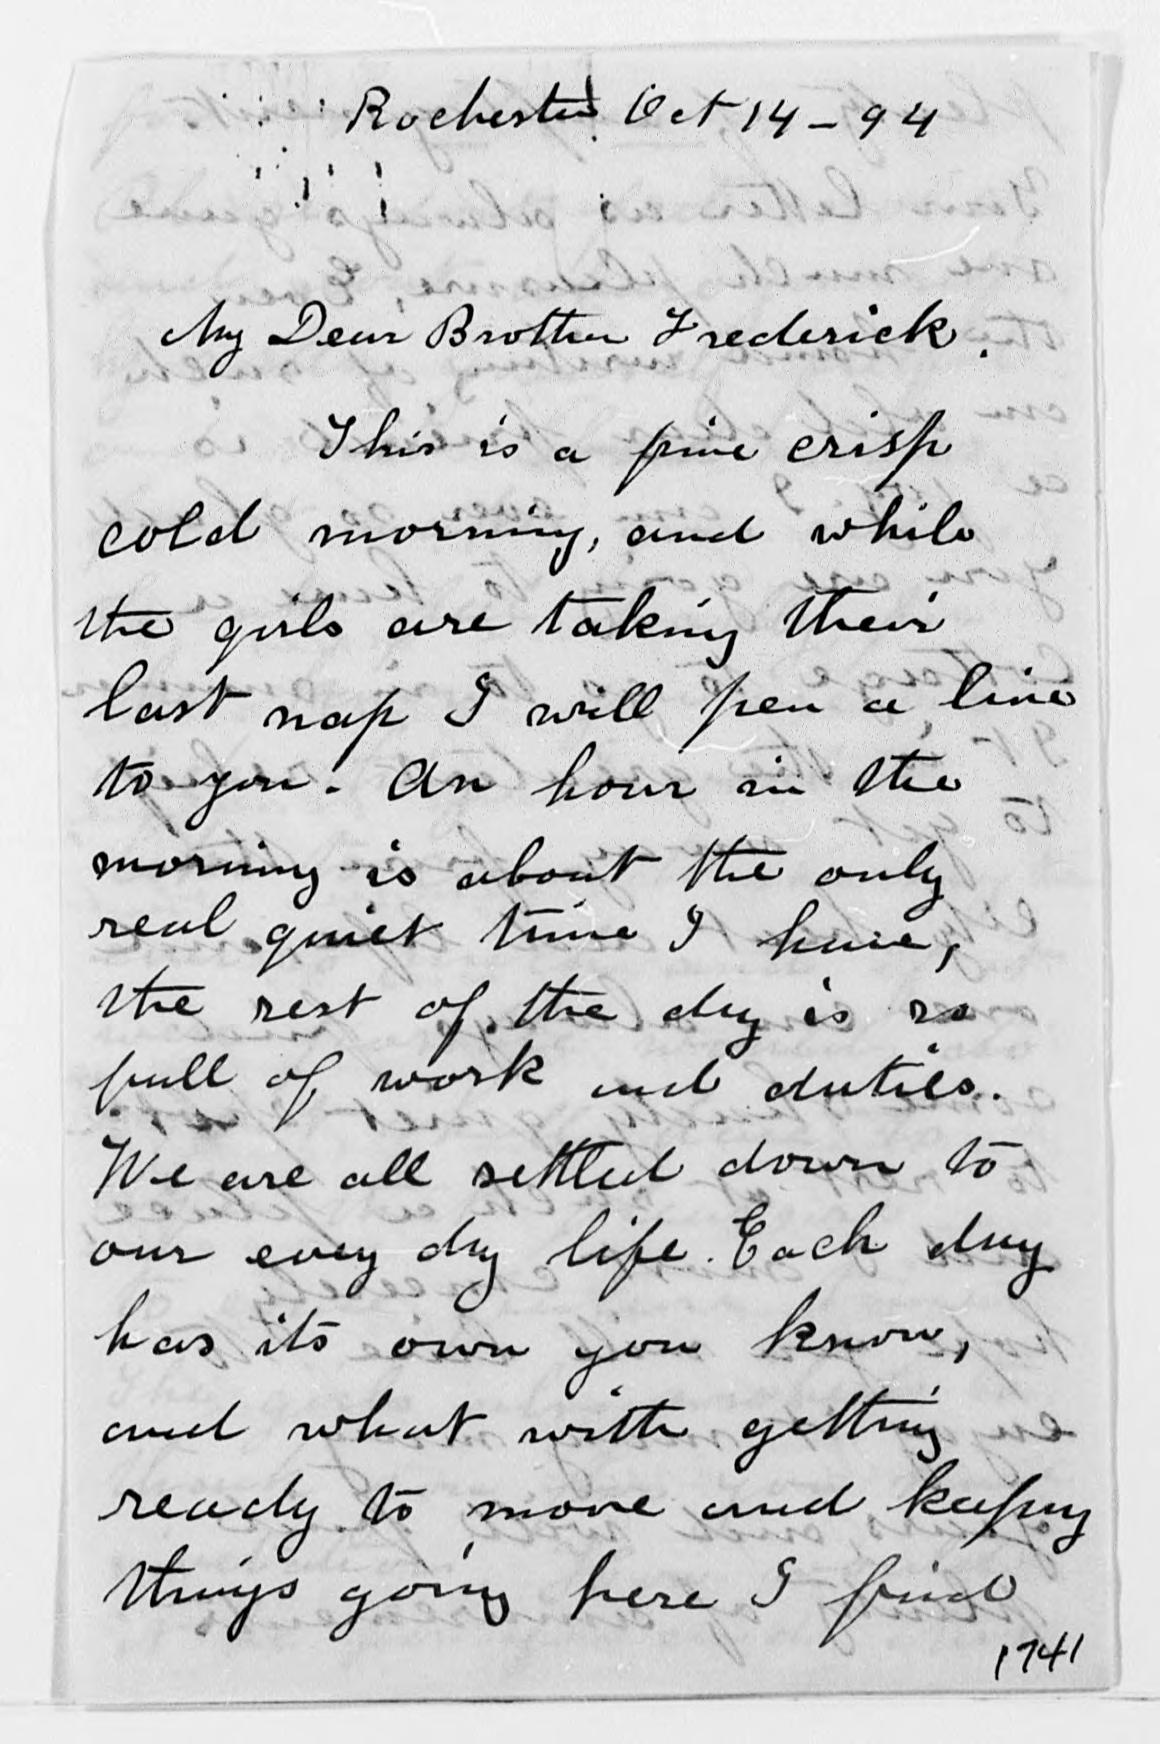 Rochester Oct 14 - 94
My Dear Brother Frederick.
This is a fine crisp
cold morning, and while
the girls are taking their
last nap I will pen a line
to you. An hour in the
morning is about the only
real quiet time I have,
the rest of the day is so
full of work and duties.
We are all settled down to
our every day life. Each day
has its own you know,
and what with getting
ready to move and keeping
things going here I find
1741